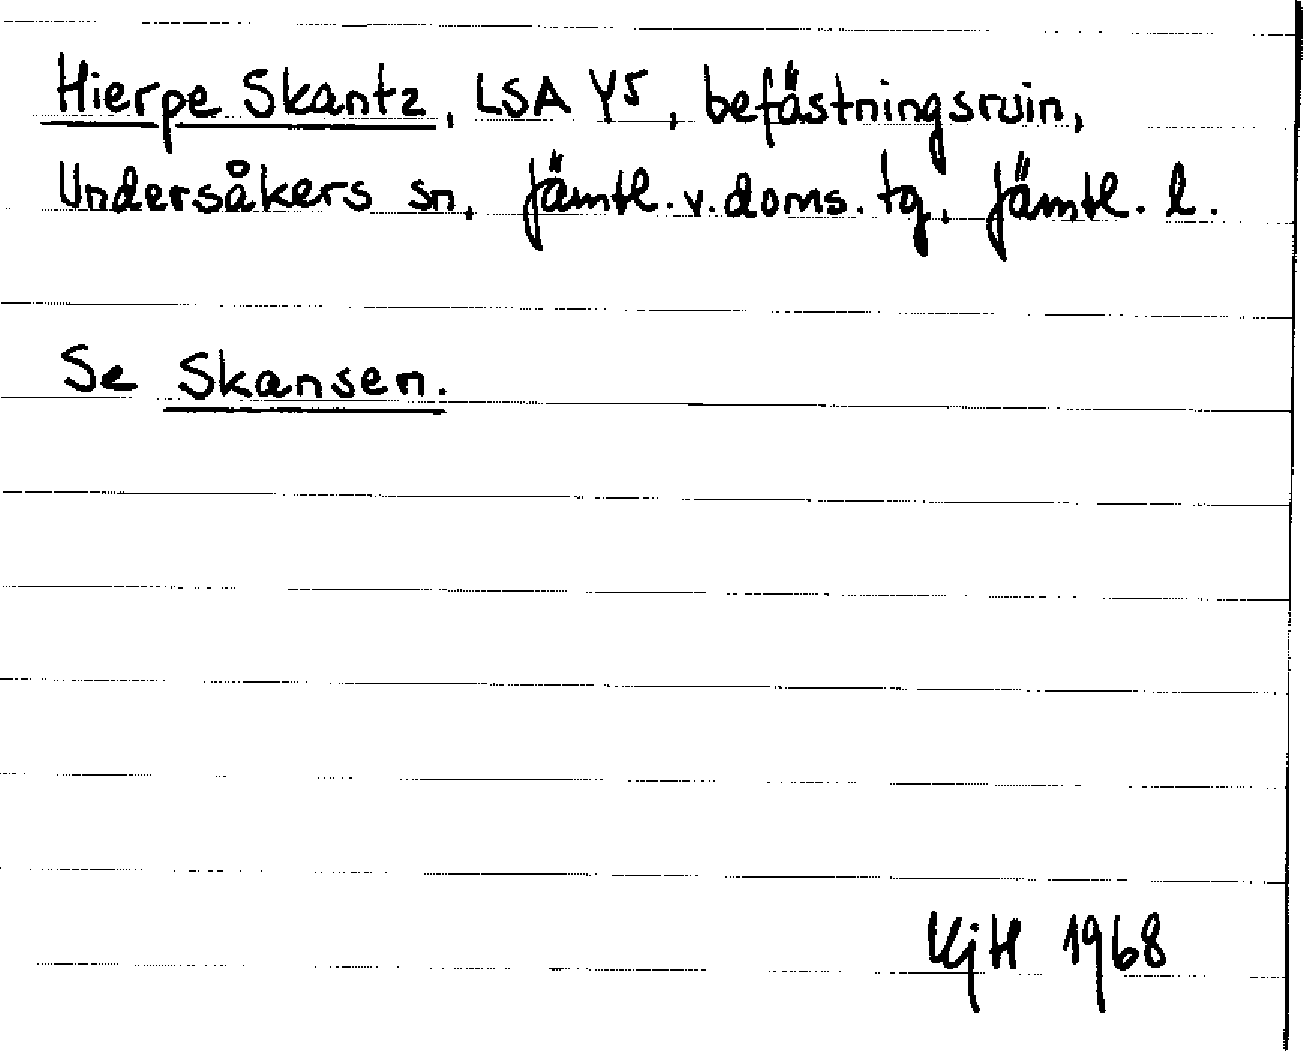 Hierpe Skantz, LSA Y5, befästningsruin,
Undersåkers sn, Jämtl.v.doms.tg, Jämtl. l.
Se Skansen.
KjH 1968